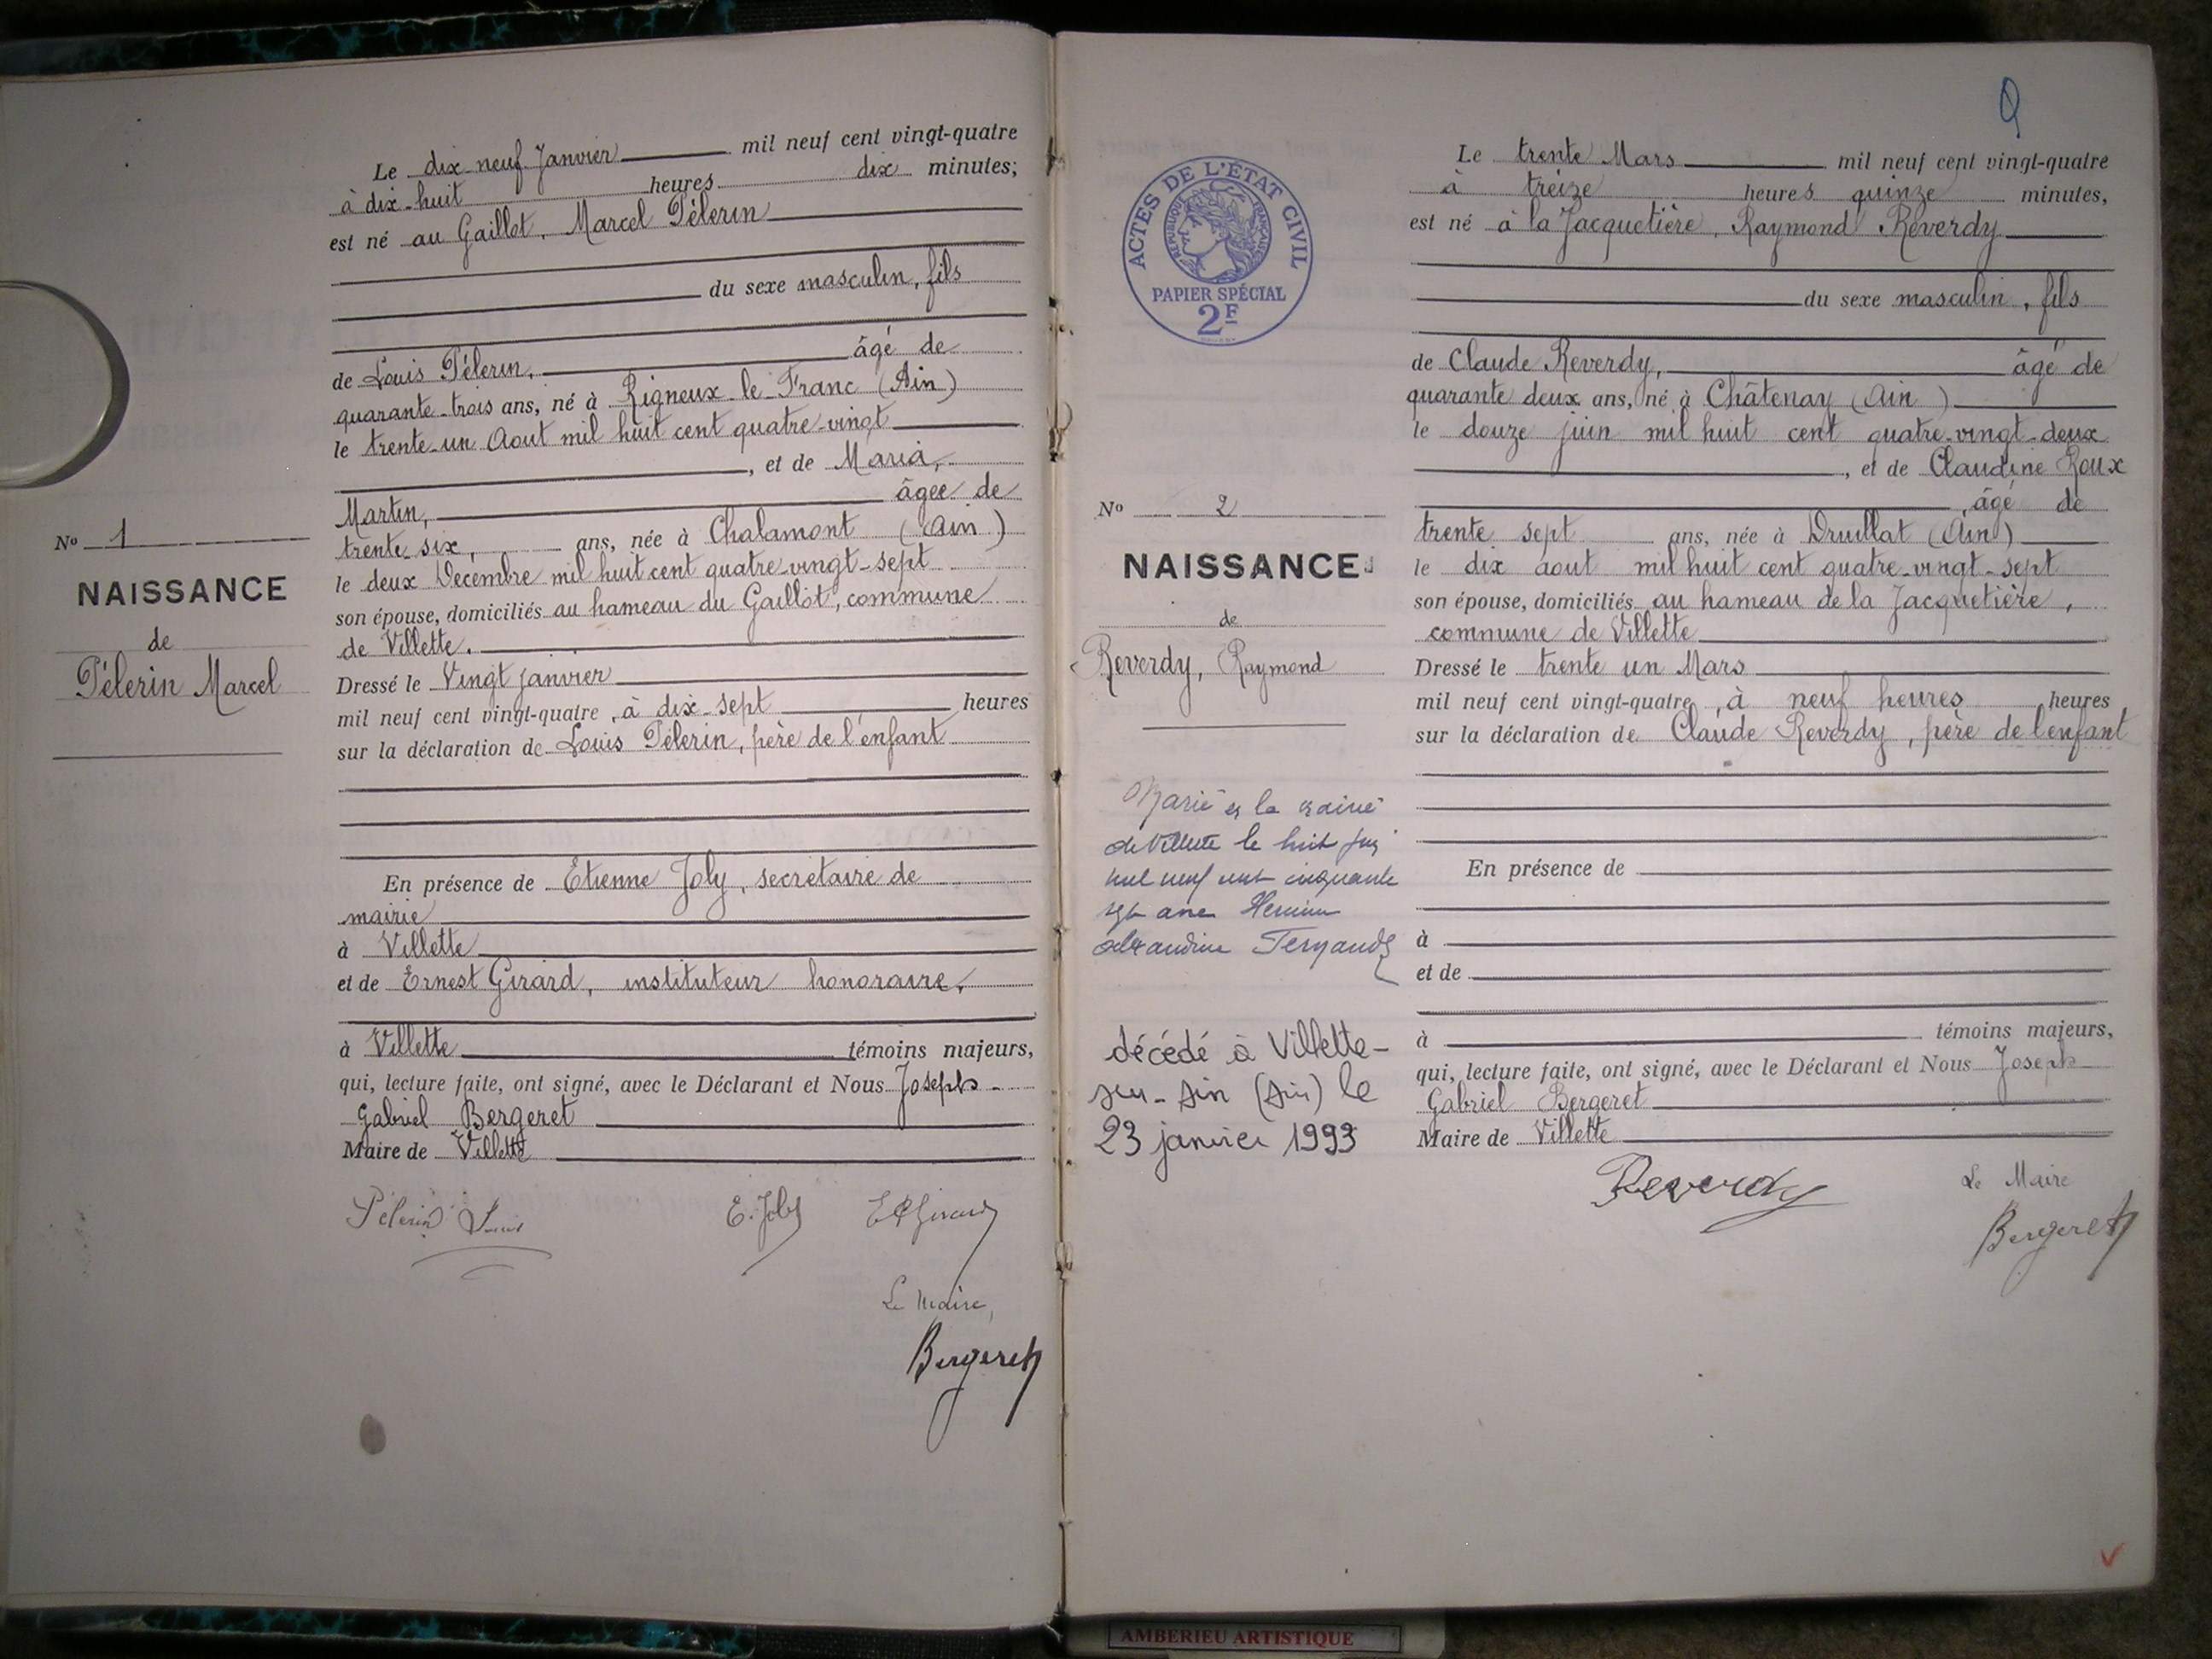 Le dix-neuf Janvier mil neuf cent vingt-quatre
à dix-huit heures dix minutes;
est né au Gaillot, Marcel Pélerin
du sexe masculin, fils
de Louis Pélerin, âgé de
quarante-trois ans, né à Rigneux-le-Franc (Ain)
le trente-un Aout mil huit cent quatre-vingt
, et de Maria,
Martin, âgée de
trente six, ans, née à Chalamont (Ain)
le deux Décembre mil huit cent quatre-vingt-sept
son épouse, domiciliés au hameau du Gaillot, commune
de Villette.
Dressé le Vingt janvier
mil neuf cent vingt-quatre, à dix-sept heures
sur la déclaration de Louis Pélerin, père de l'enfant
En présence de Etienne Joly, secrétaire de
mairie
à Villette
et de Ernest Girard, instituteur honoraire,
à Villette témoins majeurs,
qui, lecture faite, ont signé, avec le Déclarant et Nous Joseph
Gabriel Bergeret
Maire de Villette
Pélerin Louis E. Joly
Le Maire,
Bergeret
No 1
NAISSANCE
de
Pélerin Marcel
ACTES DE L'ÉTAT CIVIL
RÉPUBLIQUE FRANÇAISE
PAPIER SPÉCIAL
2F
No 2
NAISSANCE
de
Reverdy, Raymond
Marié à la mairie
de Villette le huit
mil neuf cent cinquante
sept avec
Alexandrine
décédé à Villette-
sur-Ain (Ain) le
23 janvier 1993
Le trente Mars mil neuf cent vingt-quatre
à treize heures quinze minutes,
est né à la Jacquetière, Raymond Reverdy
du sexe masculin, fils
de Claude Reverdy, âgé de
quarante deux ans, né à Châtenay (Ain)
le douze juin mil huit cent quatre-vingt-deux
, et de Claudine Roux
, âgé de
trente sept ans, née à Druillat (Ain)
le dix aout mil huit cent quatre-vingt-sept
son épouse, domiciliés au hameau de la Jacquetière,
commune de Villette
Dressé le trente un Mars
mil neuf cent vingt-quatre, à neuf heures heures
sur la déclaration de Claude Reverdy, père de l'enfant
En présence de
à
et de
à témoins majeurs,
qui, lecture faite, ont signé, avec le Déclarant et Nous Joseph
Gabriel Bergeret
Maire de Villette
Reverdy
Le Maire
Bergeret
AMBERIEU ARTISTIQUE